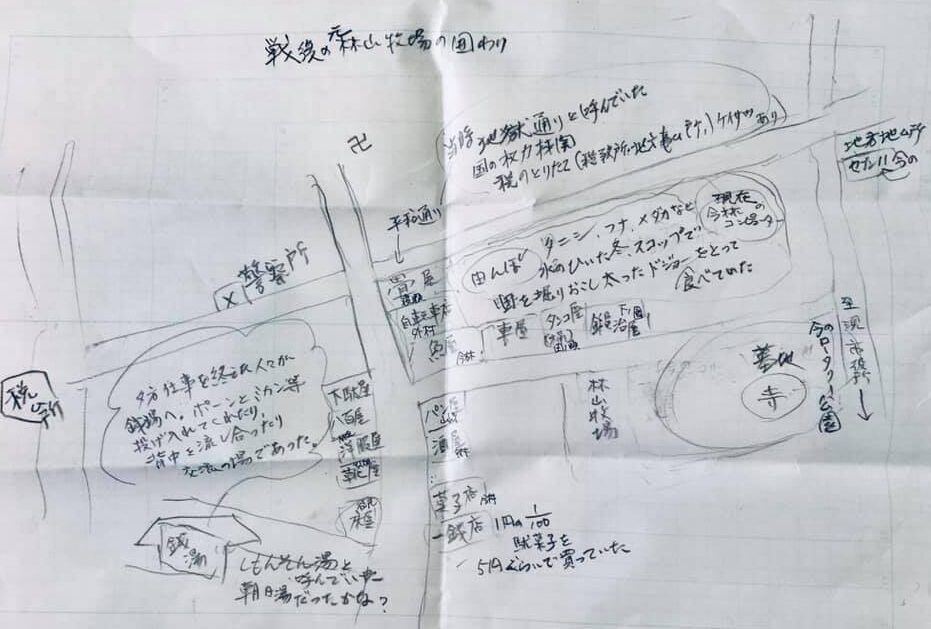 戦後の森山牧場の回わり
卍
当時地獄通りと呼んでいた
国の権力機関
税のとりたて(税務所、地方事ム所、)ケイサツあり
地方地ム所
セブン11 今の
平和通り
現在
今林の
田んぼ
タニシ、フナ、メダカなど
水のひいた冬、スコップで
掘りおこし太ったドジョーをとって
食べてゐた
警察所
X
自転車店
魚屋
今林
車屋
タンコ屋
鍛冶屋
至現市役所
今のロータリー公園
墓地
寺
林山牧場
税ム所
夕方仕事を終えた人々が
銭場へ、ポーンとミカン等
投げ入れてくれたり、
背中を流し合ったり
交流の場であった。
下駄屋
八百屋
洋服屋
靴屋
床屋
パン屋
酒屋
菓子店
一銭店
1円の1/100
駄菓子を
5円ぐらいで買っていた
銭湯
しもんそん湯と
呼んでいた
朝日湯だったかな?